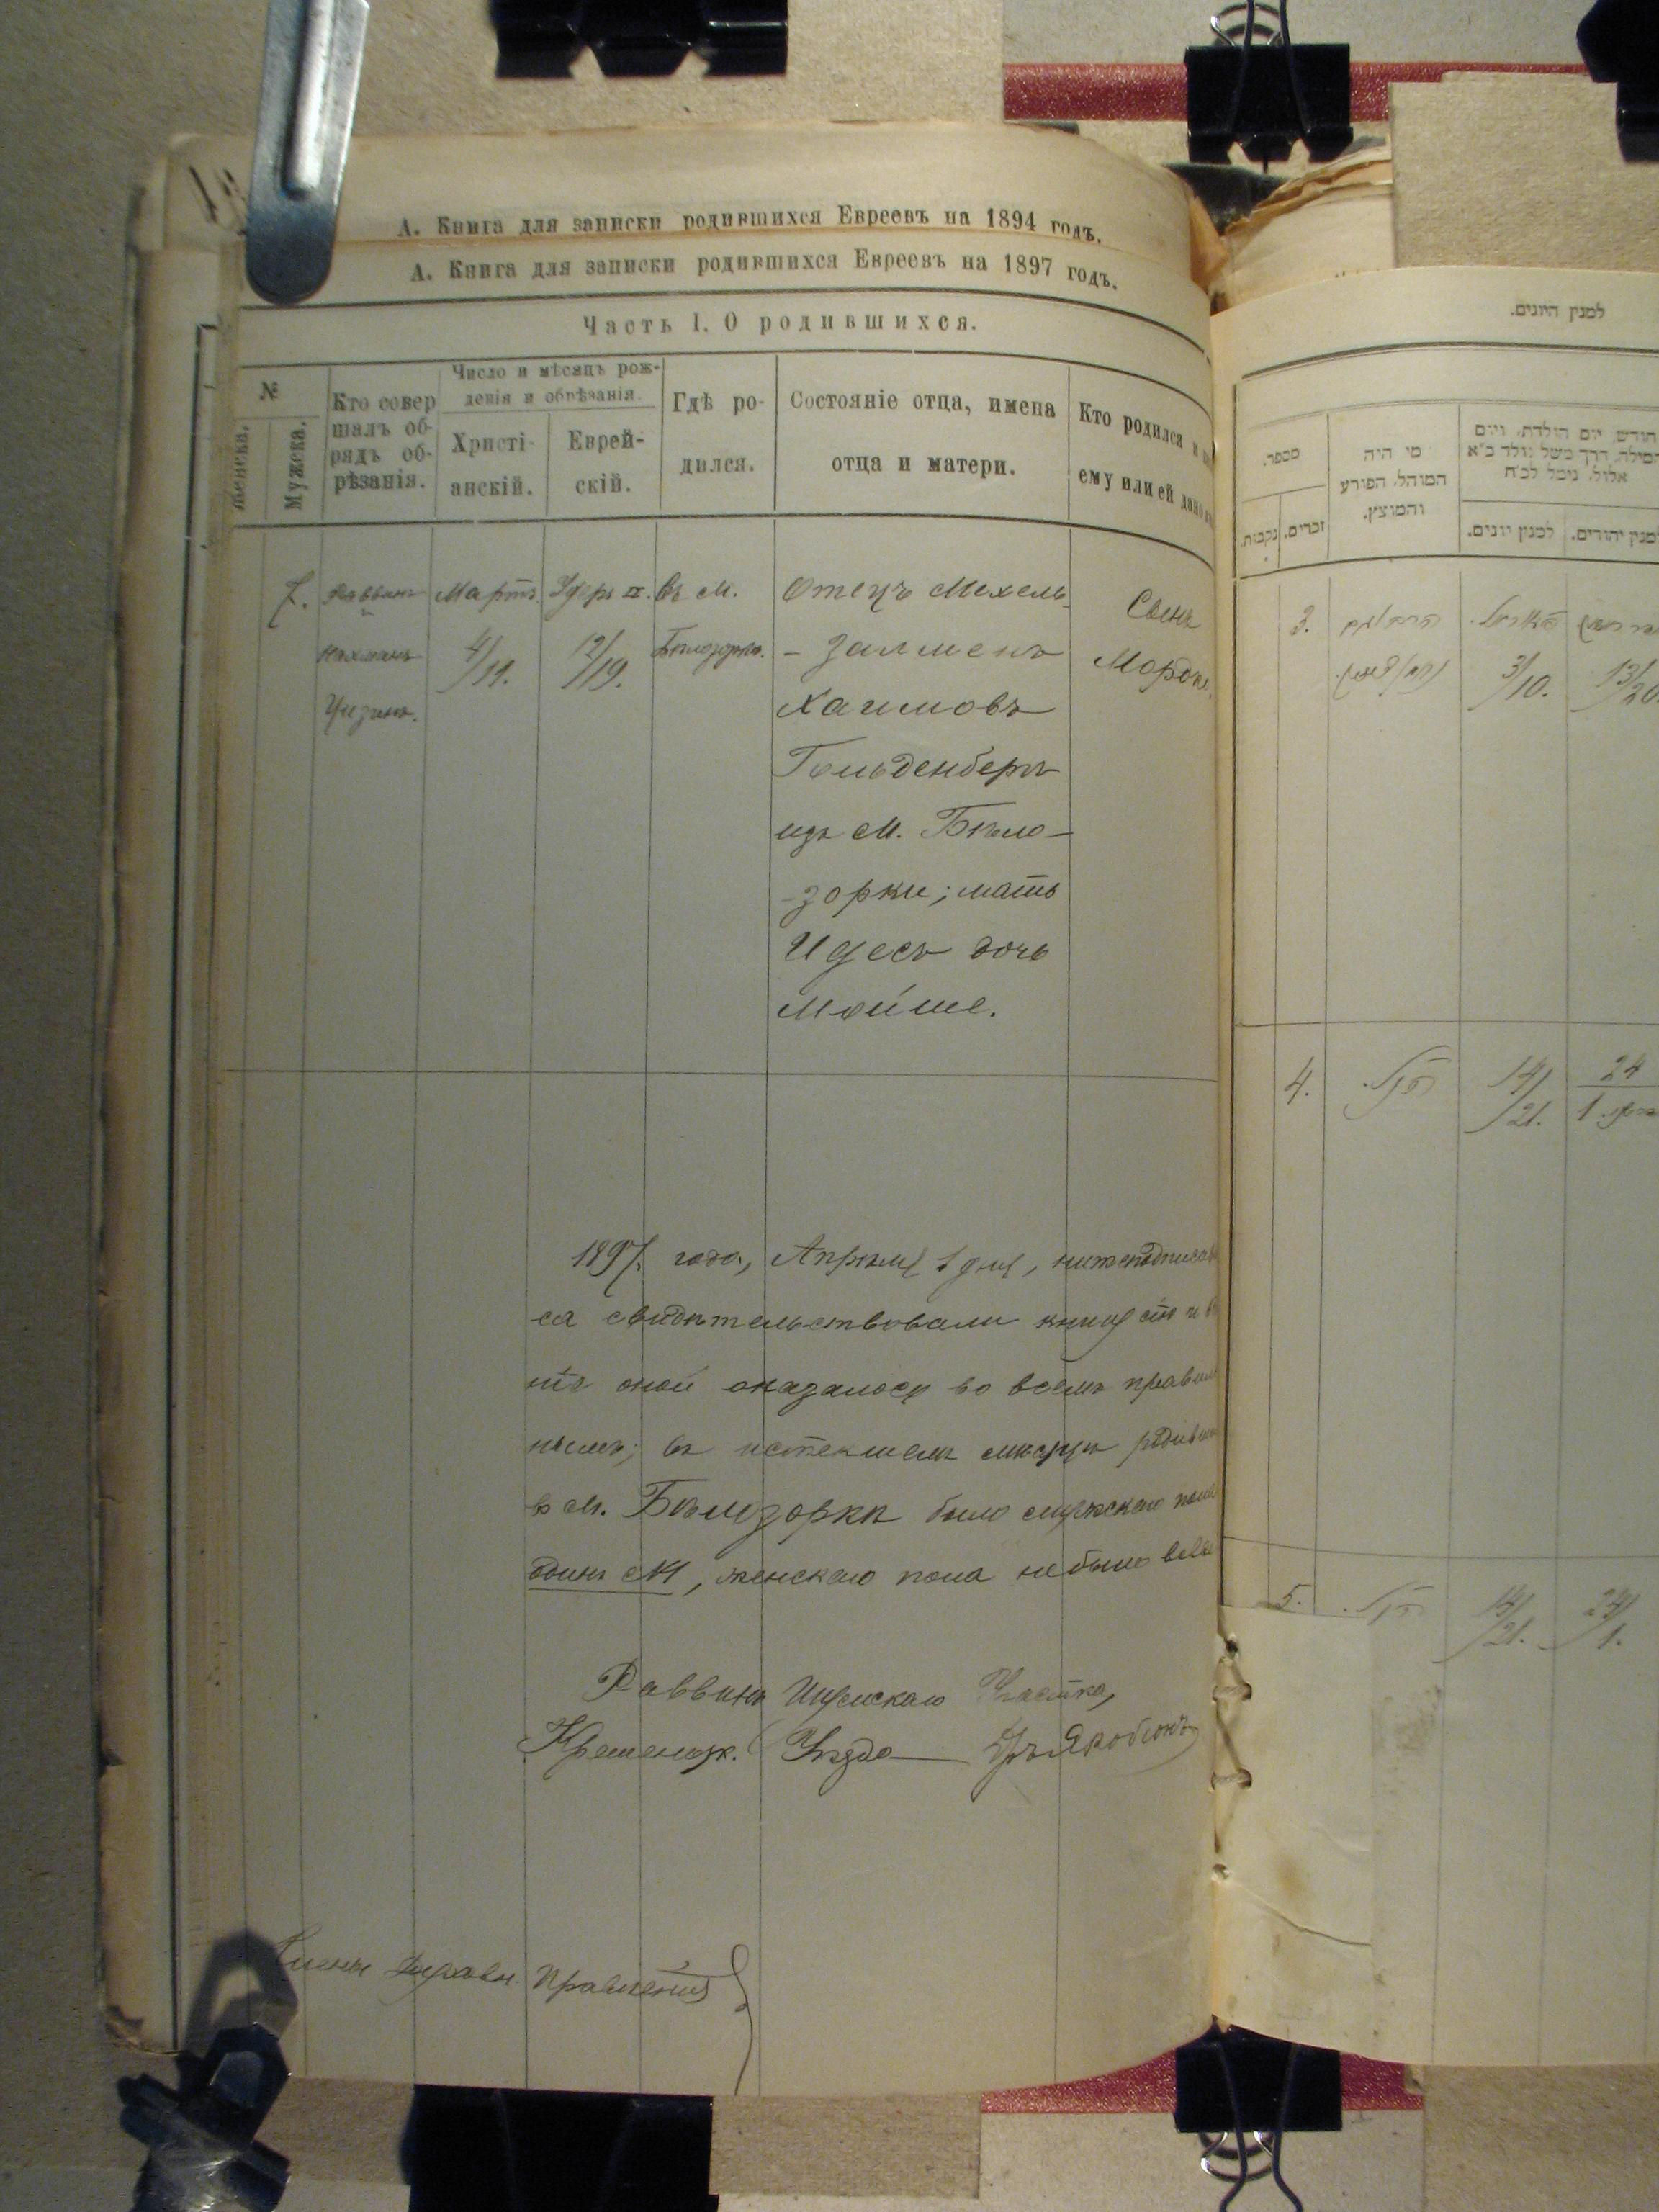 А. Книга для записки родившихся Евреевъ на 1894 годъ.
А. Книга для записки родившихся Евреевъ на 1897 годъ.
Часть I. О родившихся.
№
Женска.
Мужска.
Кто совер
шалъ об-
рядъ об-
рѣзанія.
Число и мѣсяцъ рож-
денія и обрѣзанія.
Христі-
анскій.
Еврей-
скій.
Гдѣ ро-
дился.
Состояніе отца, имена
отца и матери.
Кто родился и
ему или ей дано
7.
Раввинъ
Нахманъ
Мартъ
4/11.
Адеръ II.
12/19.
въ М.
Бѣлозоркѣ.
Отецъ Мехель
- Залменъ
Хаимовъ
Гольденберг
изъ М. Бѣло-
-зорки; мать
Идесъ дочь
Мойше.
Сынъ
Мордко.
1897. года, Апрѣля 1 дня, нижеподписав
ся свидѣтельствовали книгу сію и
оной оказалось во всемъ правил
нымъ; въ истекшемъ мѣсяцѣ родивш
въ М. Бѣлозоркѣ было мужскаго пола
одинъ М, женскаго пола не было
Раввинъ Участка,
Кременецк. Уѣзда Якобсонъ
Члены Духовн. Правленія
למנין היונים.
מספר.
נקבות.
זכרים.
מי היה
המוהל, הפורע
והמוצץ.
חודש, יום הולדת, ויום
למנין יונים.
למנין יהודים.
3.
3/10.
13/20
4.
14/21.
24
1
5.
14/21.
24/1.